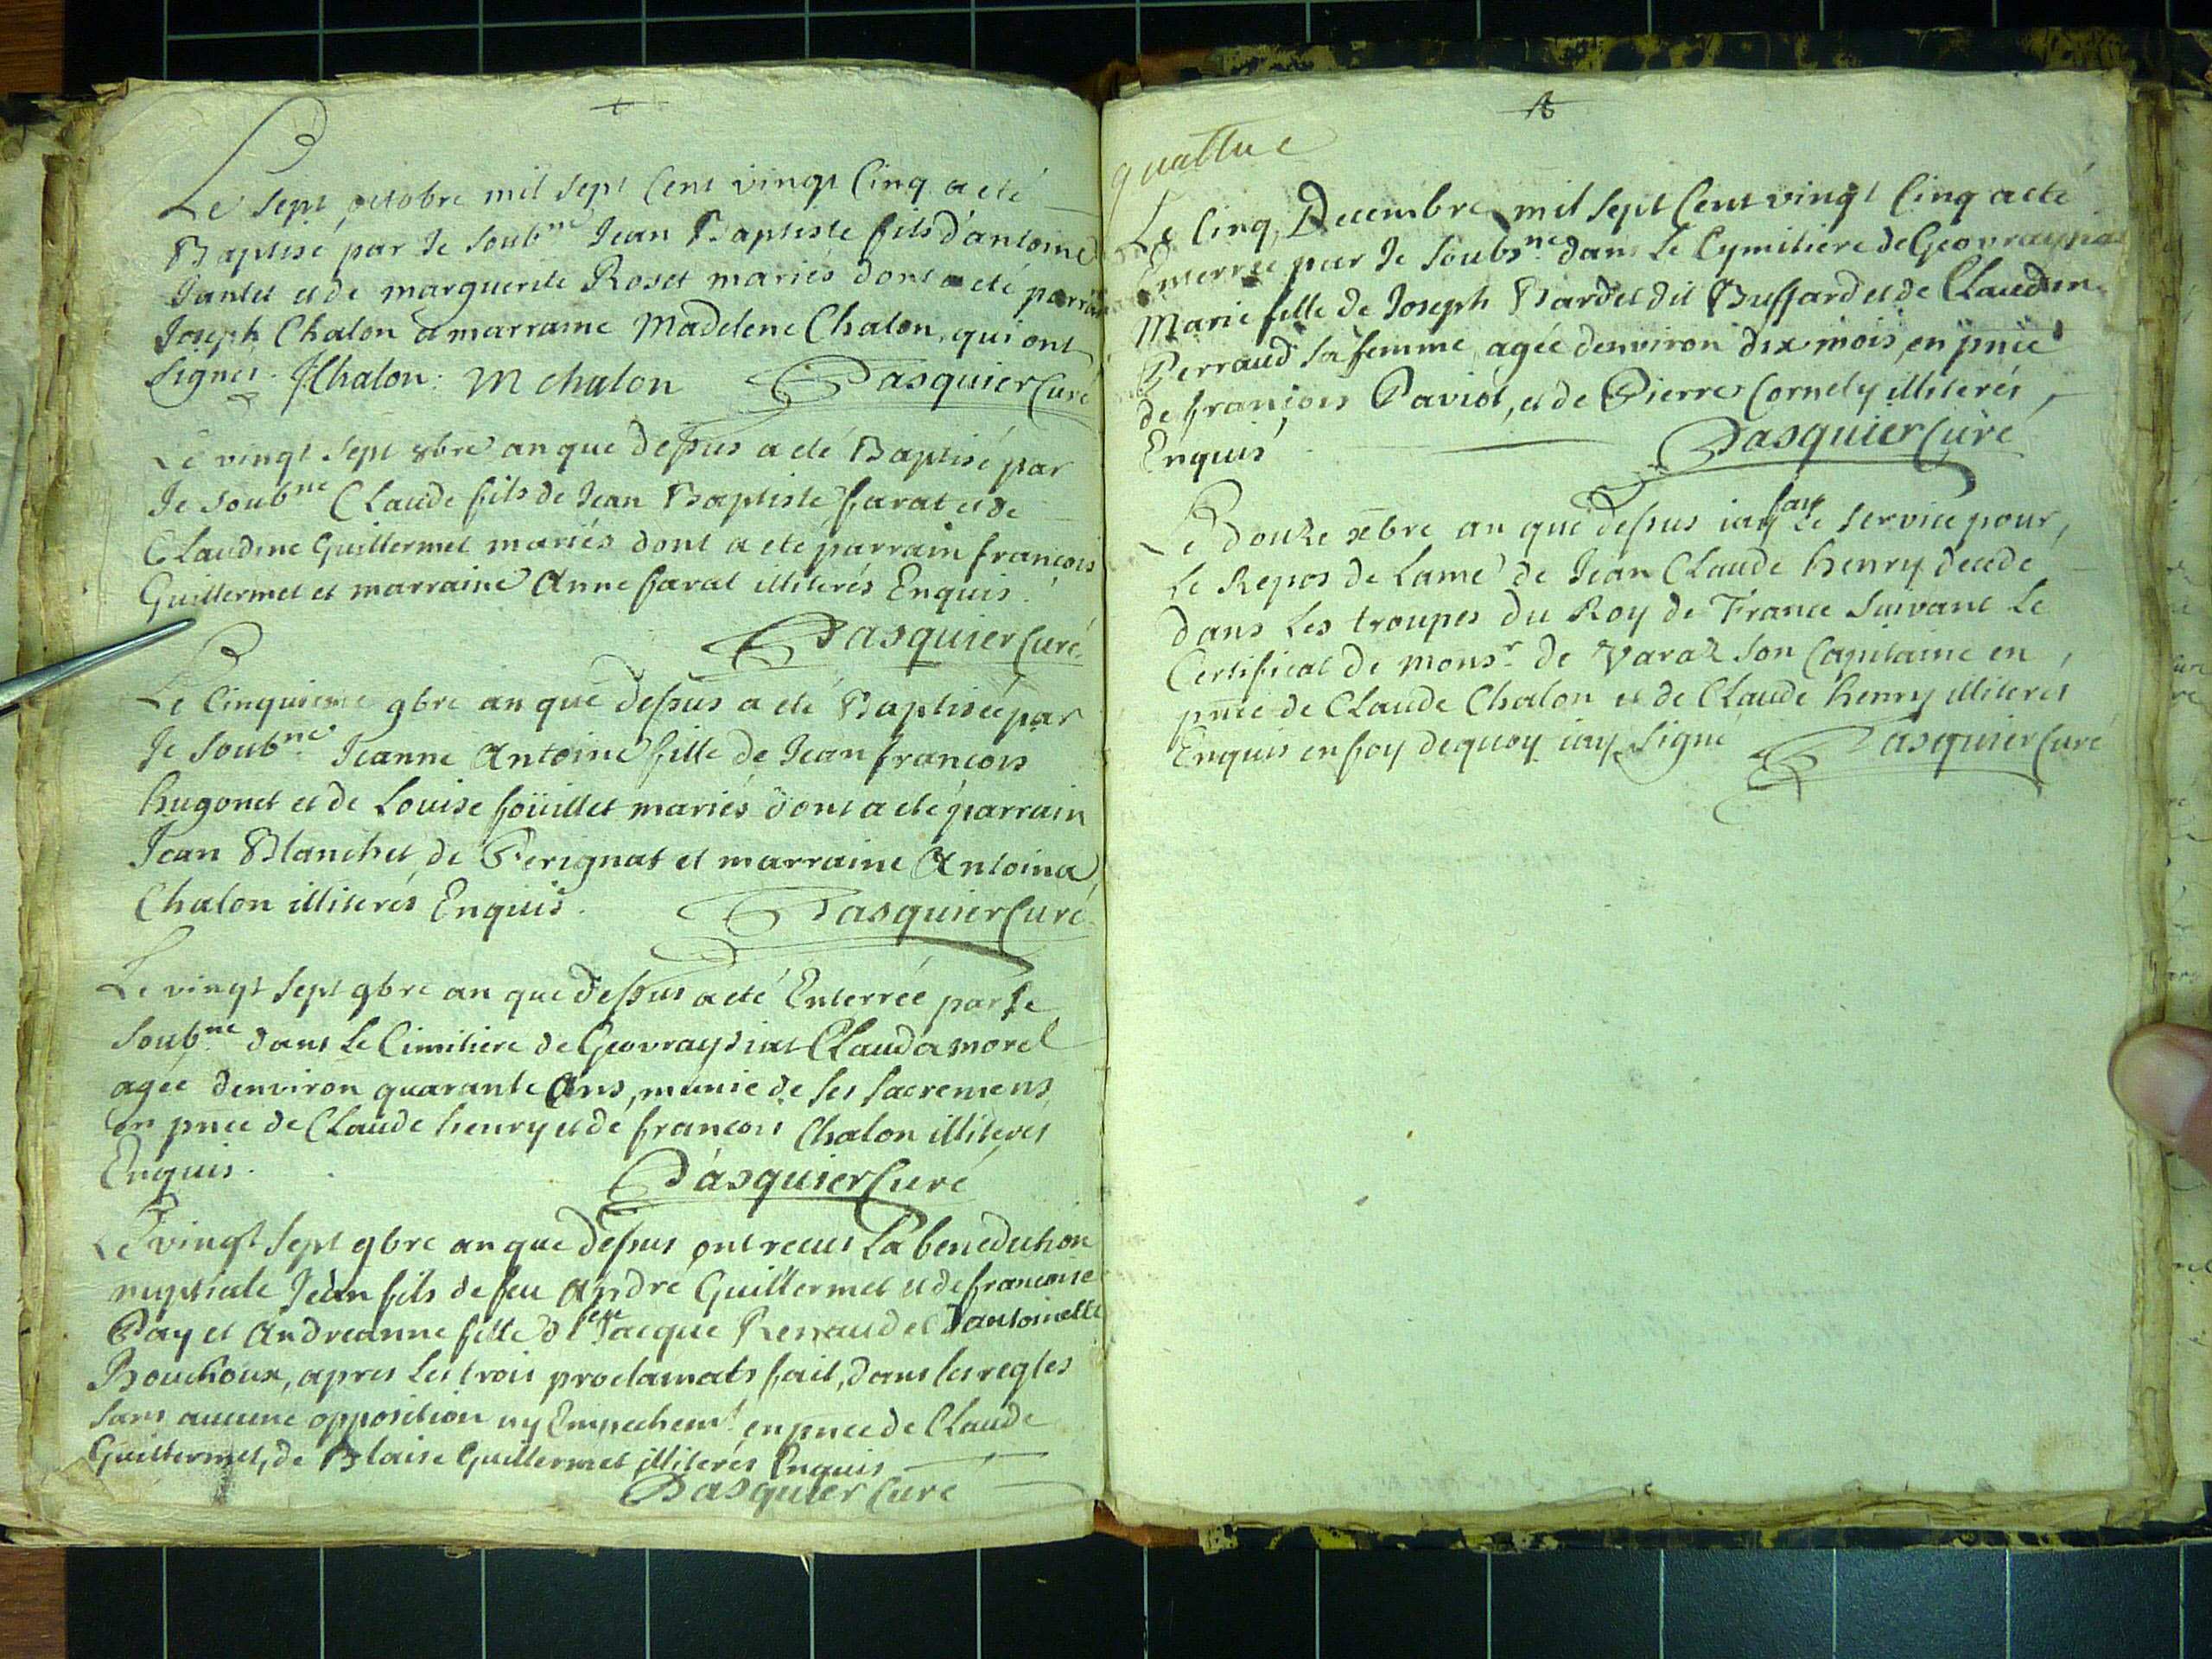 Le sept octobre mil sept Cent vingt Cinq a eté
Baptisé par Je soub.né Jean Baptiste fils d'antoine
Jantet et de marguerite Roset mariés dont a eté parrain
Joseph Chalon a marraine Madelene Chalon, qui ont
signés. JChalon: M chalon Pasquier Curé
Le vingt sept 8bre an que dessus a eté Baptisé par
Je soub.né Claude fils de Jean Baptiste farat et de
Claudine Guillermet mariés dont a eté parrain francois
Guillermet et marraine Anne farat illiterés Enquis.
Pasquier Curé
Le Cinquieme 9bre an que dessus a eté Baptisée par
Je soub.né Jeanne Antoine fille de Jean francois
hugonet et de Louise foüillet mariés dont a eté parrain
Jean Blanchet de Perignat et marraine Antoina
Chalon illiterés Enquis. Pasquier Curé
Le vingt sept 9bre an que dessus a eté Enterrée par Je
soub.né dans Le Cimitiere de Geovraysiat Clauda morel
agée denviron quarante Ans, munie de ses sacremens
en pnce de Claude henry et de francois Chalon illiterés
Enquis. Pasquier Curé
Le vingt sept 9bre an que dessus ont recus La benediction
nuptiale Jean fils de feu André Guillermet et de francoise
Pay et Andreanne fille de feu Jacque Renaud et Dantoinette
Bouchoux, apres les trois proclamats fait, dans les regles
sans aucune opposition ny Empechemt en pnce de Claude
Guillermet, de Blaise Guillermet illiterés Enquis
Pasquier Curé
quattre
Le Cinq Decembre mil sept Cent vingt Cinq a eté
Enterrée par Je soubs.né dans Le Cymitiere de Geovraysiat
Marie fille de Joseph Bardet dit Buffard et de Claudine
Perraud sa femme, agée denviron dix mois, en pnce
de francois Paviot, et de Pierre Cornely illiterés
Enquis Pasquier Curé
Le Douze xbre an que dessus iay fait Le service pour
Le Repos de Lame de Jean Claude henry decede
dans Les troupes du Roy de France suivant Le
Certificat de monsr de Varaz son Capitaine en
pnce de Claude Chalon et de Claude henry illiterés
Enquis en foy dequoy iay signé Pasquier Curé